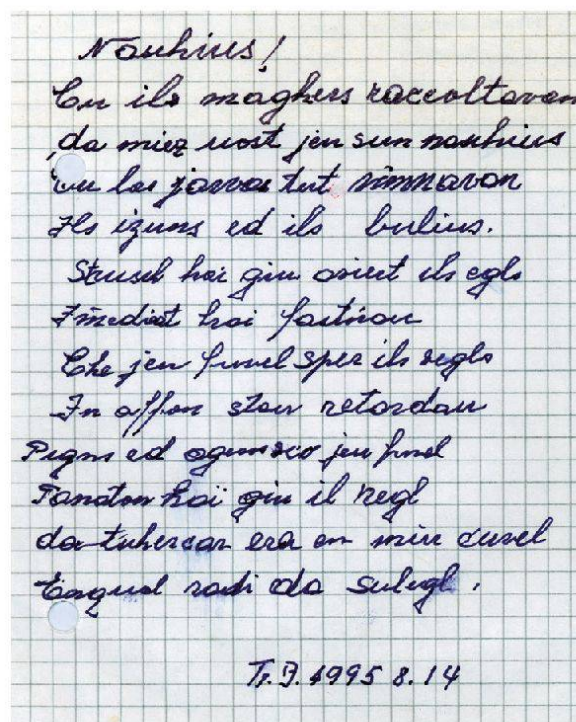 Naschius!
Cu ils maghers raccoltavan
da miez uost jeu sun naschius
Cu las jarvas tut simnavan
Ils izuns ed ils bulius.
Strusch hai giu aviert ils egls
Imediat hai fastinau
Che jeu fuvel sper ils segls
In affon stau retardau
Pigns ed sco jeu fuvel
Tonaton hai giu il negl
da tschercar era en miu cuvel
Enqual radi da sulegl.
Tr. J. 1995 8.14